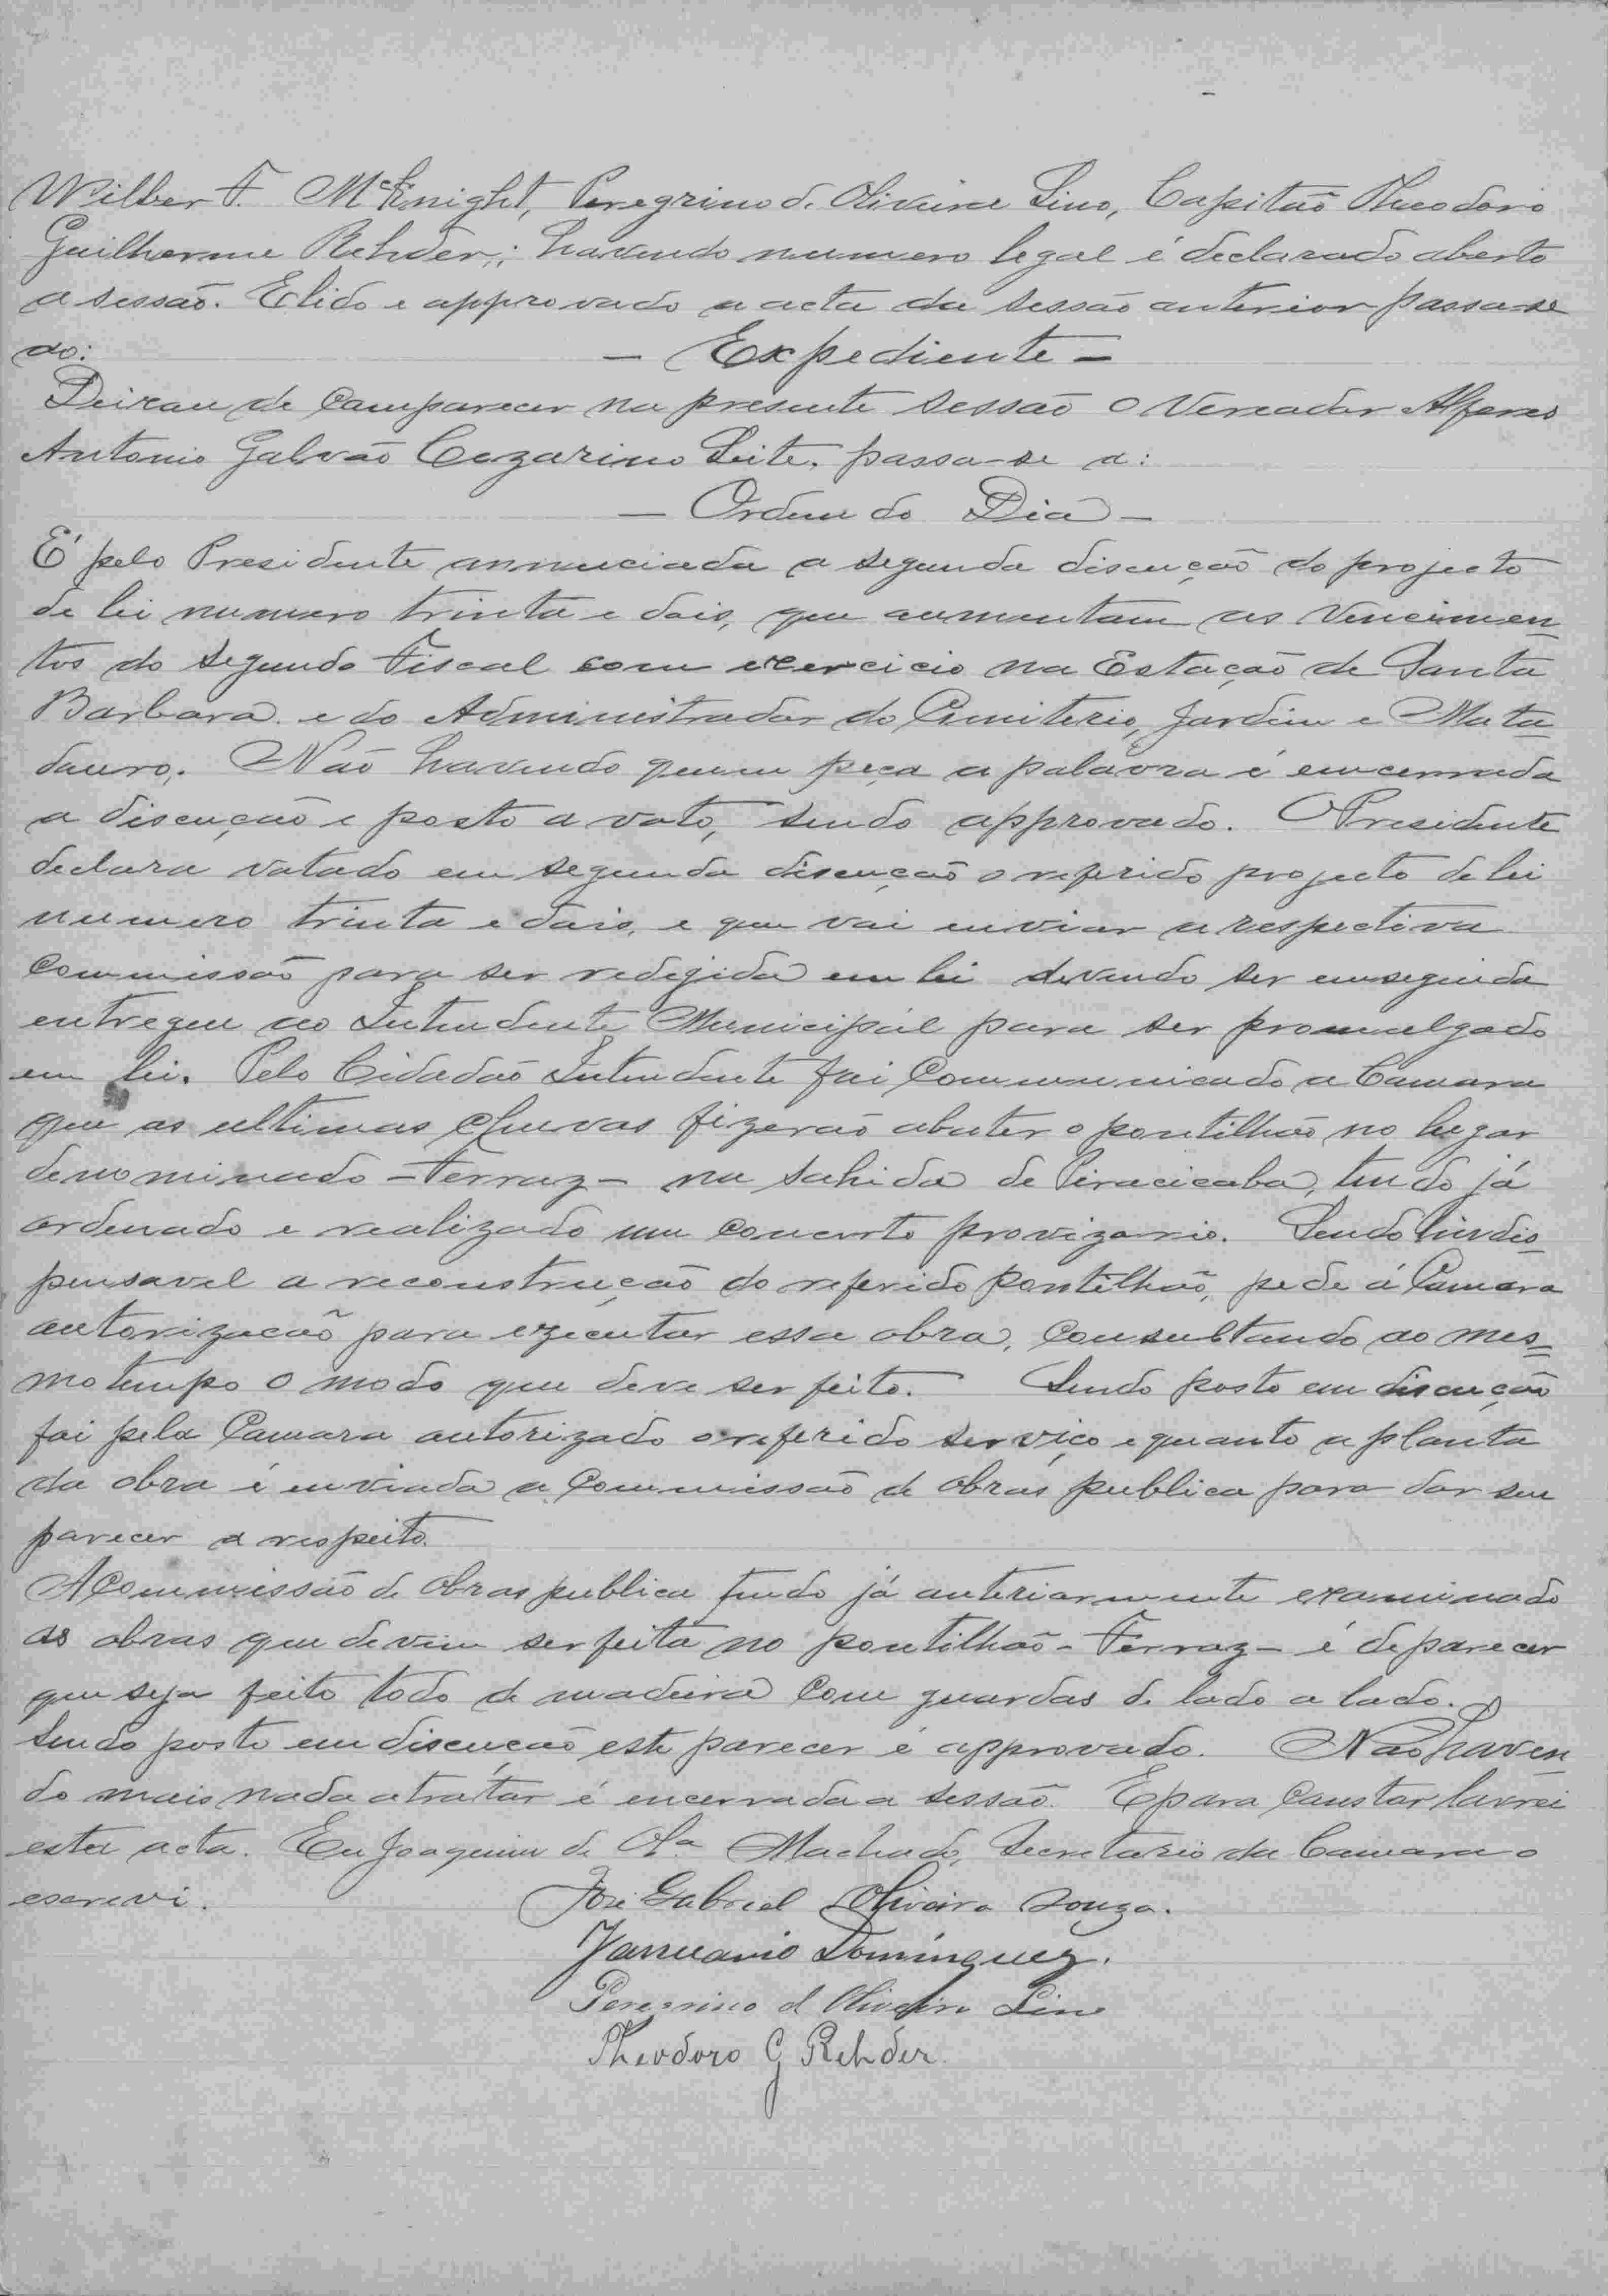 Wilber F. McKnight, Peregrino d. Oliveira Lino, Capitão Theodoro
Guilherme Rehder; havendo numero legal é declarado aberto
a sessão. E lido e approvado a acta da sessão anterior passa-se
ao:
— Expediente —
Deixou de Comparecer na presente sessão o Vereador Alferes
Antonio Galvão Cezarino Leite. passa-se a:
— Ordem do Dia —
É pelo Presidente annunciada a segunda discução do projecto
de lei numero trinta e dois, que aumentam os Vencimen=
tos do segundo Fiscal com exercicio na Estação de Santa
Barbara e do Administrador do Cimiterio, Jardim e Mata=
douro. Não havendo quem peça a palavra é emcerrada
a discução e posto a voto, sendo approvado. O Presidente
declara votado em segunda discução o referido projecto de lei
numero trinta e dois, e que vai enviar a respectiva
Commissão para ser redigida em lei devendo ser emseguida
entregue ao Intendente Municipal para ser promulgado
em lei. Pelo Cidadão Intendente foi Communicado a Camara
que as ultimas chuvas fizerão abater o pontilhão no lugar
denominado - Ferraz - na sahida de Piracicaba, tendo já
ordenado e realizado um concerto provizorio. Sendo indis=
pensavel a reconstrucção do referido pontilhão, pede á Camara
autorização para executar essa obra, consultando ao mes=
mo tempo o modo que deve ser feito. Sendo posto em discução
foi pela Camara autorizado o referido serviço e quanto a planta
da obra é enviada a Commissão de obras publica para dar seu
parecer a respeito.
A Commissão de obras publica tendo já anteriormente examinado
as obras que devem ser feita no pontilhão - Ferraz - é de parecer
que seja feito todo de madeira com guardas de lado a lado.
Sendo posto em discução este parecer é approvado. Não haven=
do mais nada a tratar é encerrada a sessão. E para Constar lavrei
esta acta. Eu Joaquim de Olª Machado, Secretario da Camara o
escrevi.
José Gabriel Oliveira Souza.
Januario Domingues.
Peregrino d Oliveira Lino
Theodoro G Rehder.